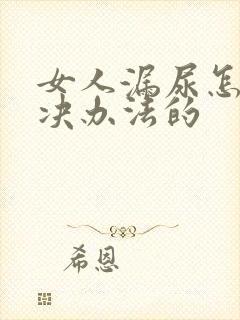 女人漏尿怎
决办法的
希恩